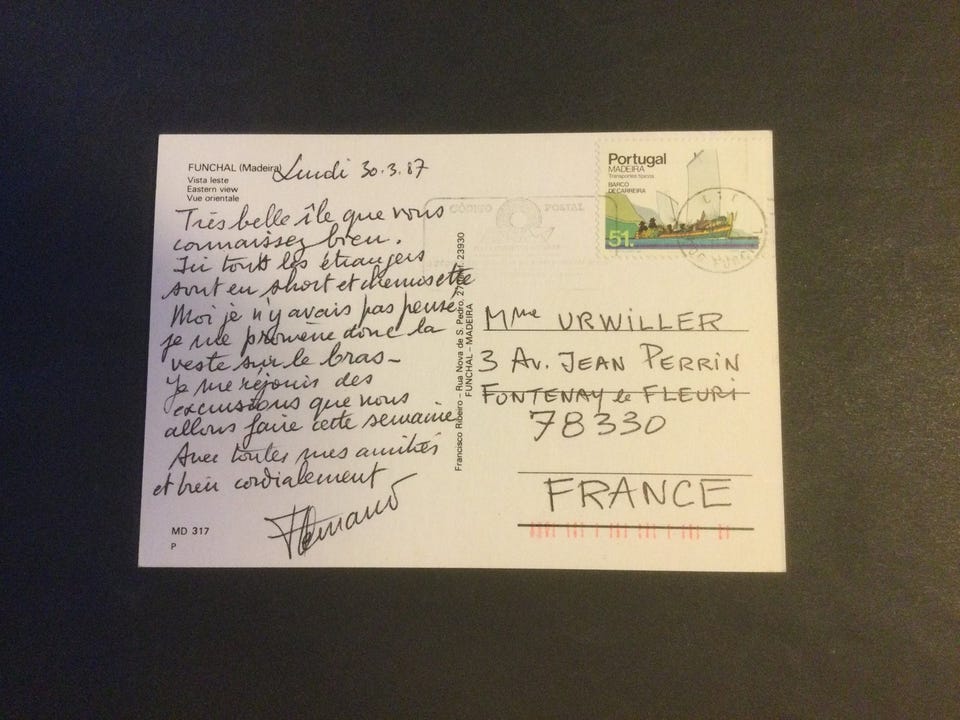 FUNCHAL (Madeira)
Vista leste
Eastern view
Vue orientale
Lundi 30.3.87
Très belle île que vous
connaissez bien.
Ici tous les étrangers
sont en short et chemisette
Moi je n'y avais pas pensé,
je me promène donc la
veste sur le bras –
Je me réjouis des
excursions que nous
allons faire cette semaine
Avec toutes mes amitiés
et bien cordialement
MD 317
P
Francisco Ribeiro – Rua Nova de S. Pedro, 23930
FUNCHAL – MADEIRA
CÓDIGO POSTAL
Portugal
MADEIRA
Transportes típicos
BARCO
DE CARREIRA
51.
Mme URWILLER
3 Av. JEAN PERRIN
FONTENAY le FLEURI
78330
FRANCE